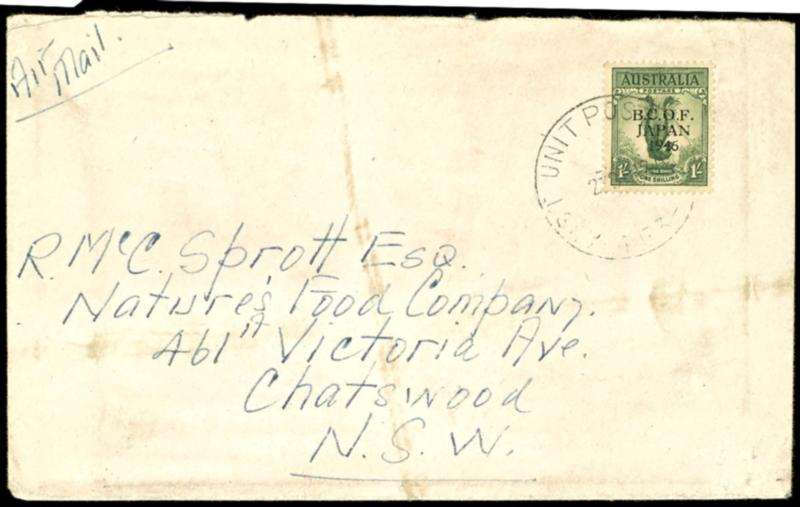 Air
Mail.
AUSTRALIA
POSTAGE
B.C.O.F.
JAPAN
1946
1/- ONE SHILLING 1/-
UNIT POS
R. McC. Sprott Esq.
Nature's Food Company.
461"A" Victoria Ave.
Chatswood
N.S.W.